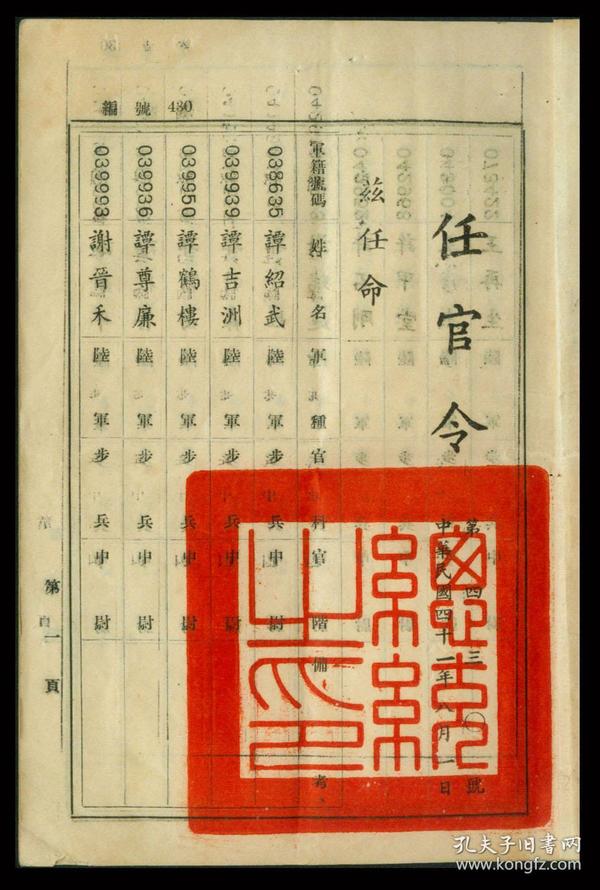 任官令
第四三〇號
中華民國四十一年八月一日
茲任命
軍籍號碼 姓名 軍種 官科 官階 備考
038635 譚紹武 陸軍 步兵 中尉
039939 譚吉洲 陸軍 步兵 中尉
039950 譚鶴樓 陸軍 步兵 中尉
039936 譚尊廉 陸軍 步兵 中尉
039993 謝晉禾 陸軍 步兵 中尉
編號 430
第一頁
孔夫子旧书网
www.kongfz.com